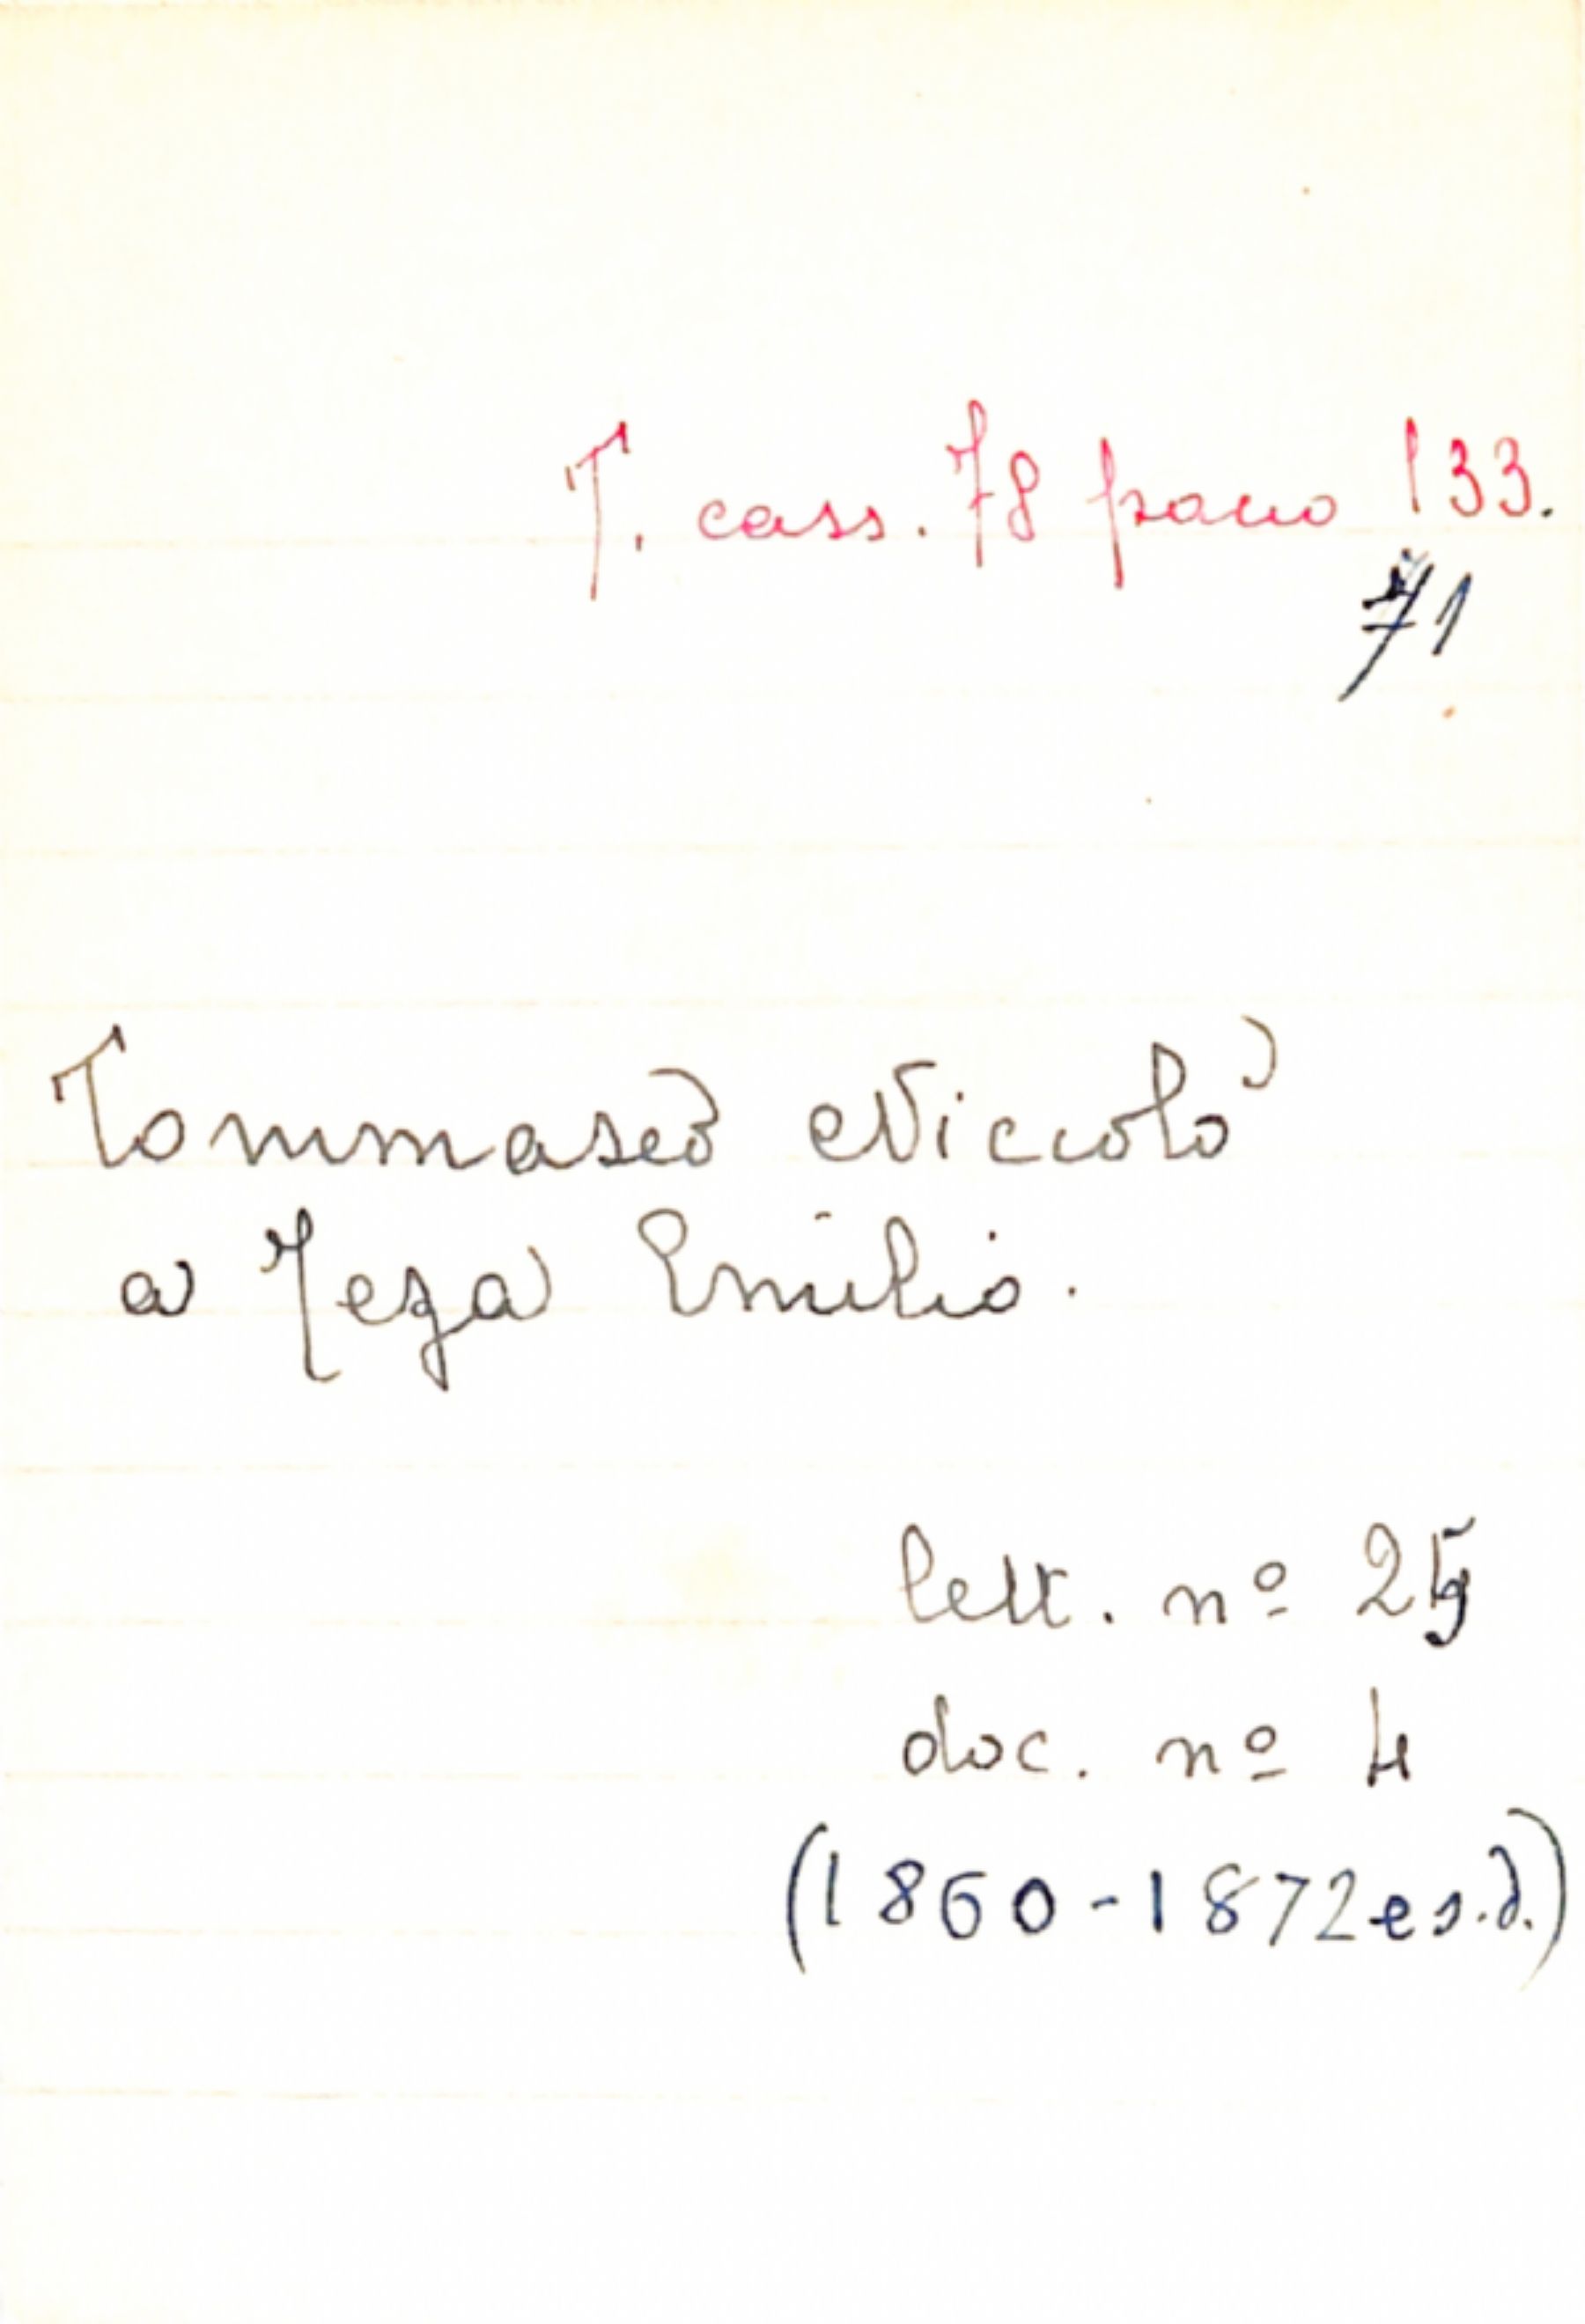 T. cass. 78 pacco 133.
71
Tommaseo Niccolò
a Teza Emilio.
lett. nº 25
doc. nº 4
(1860-1872 e s.d.)